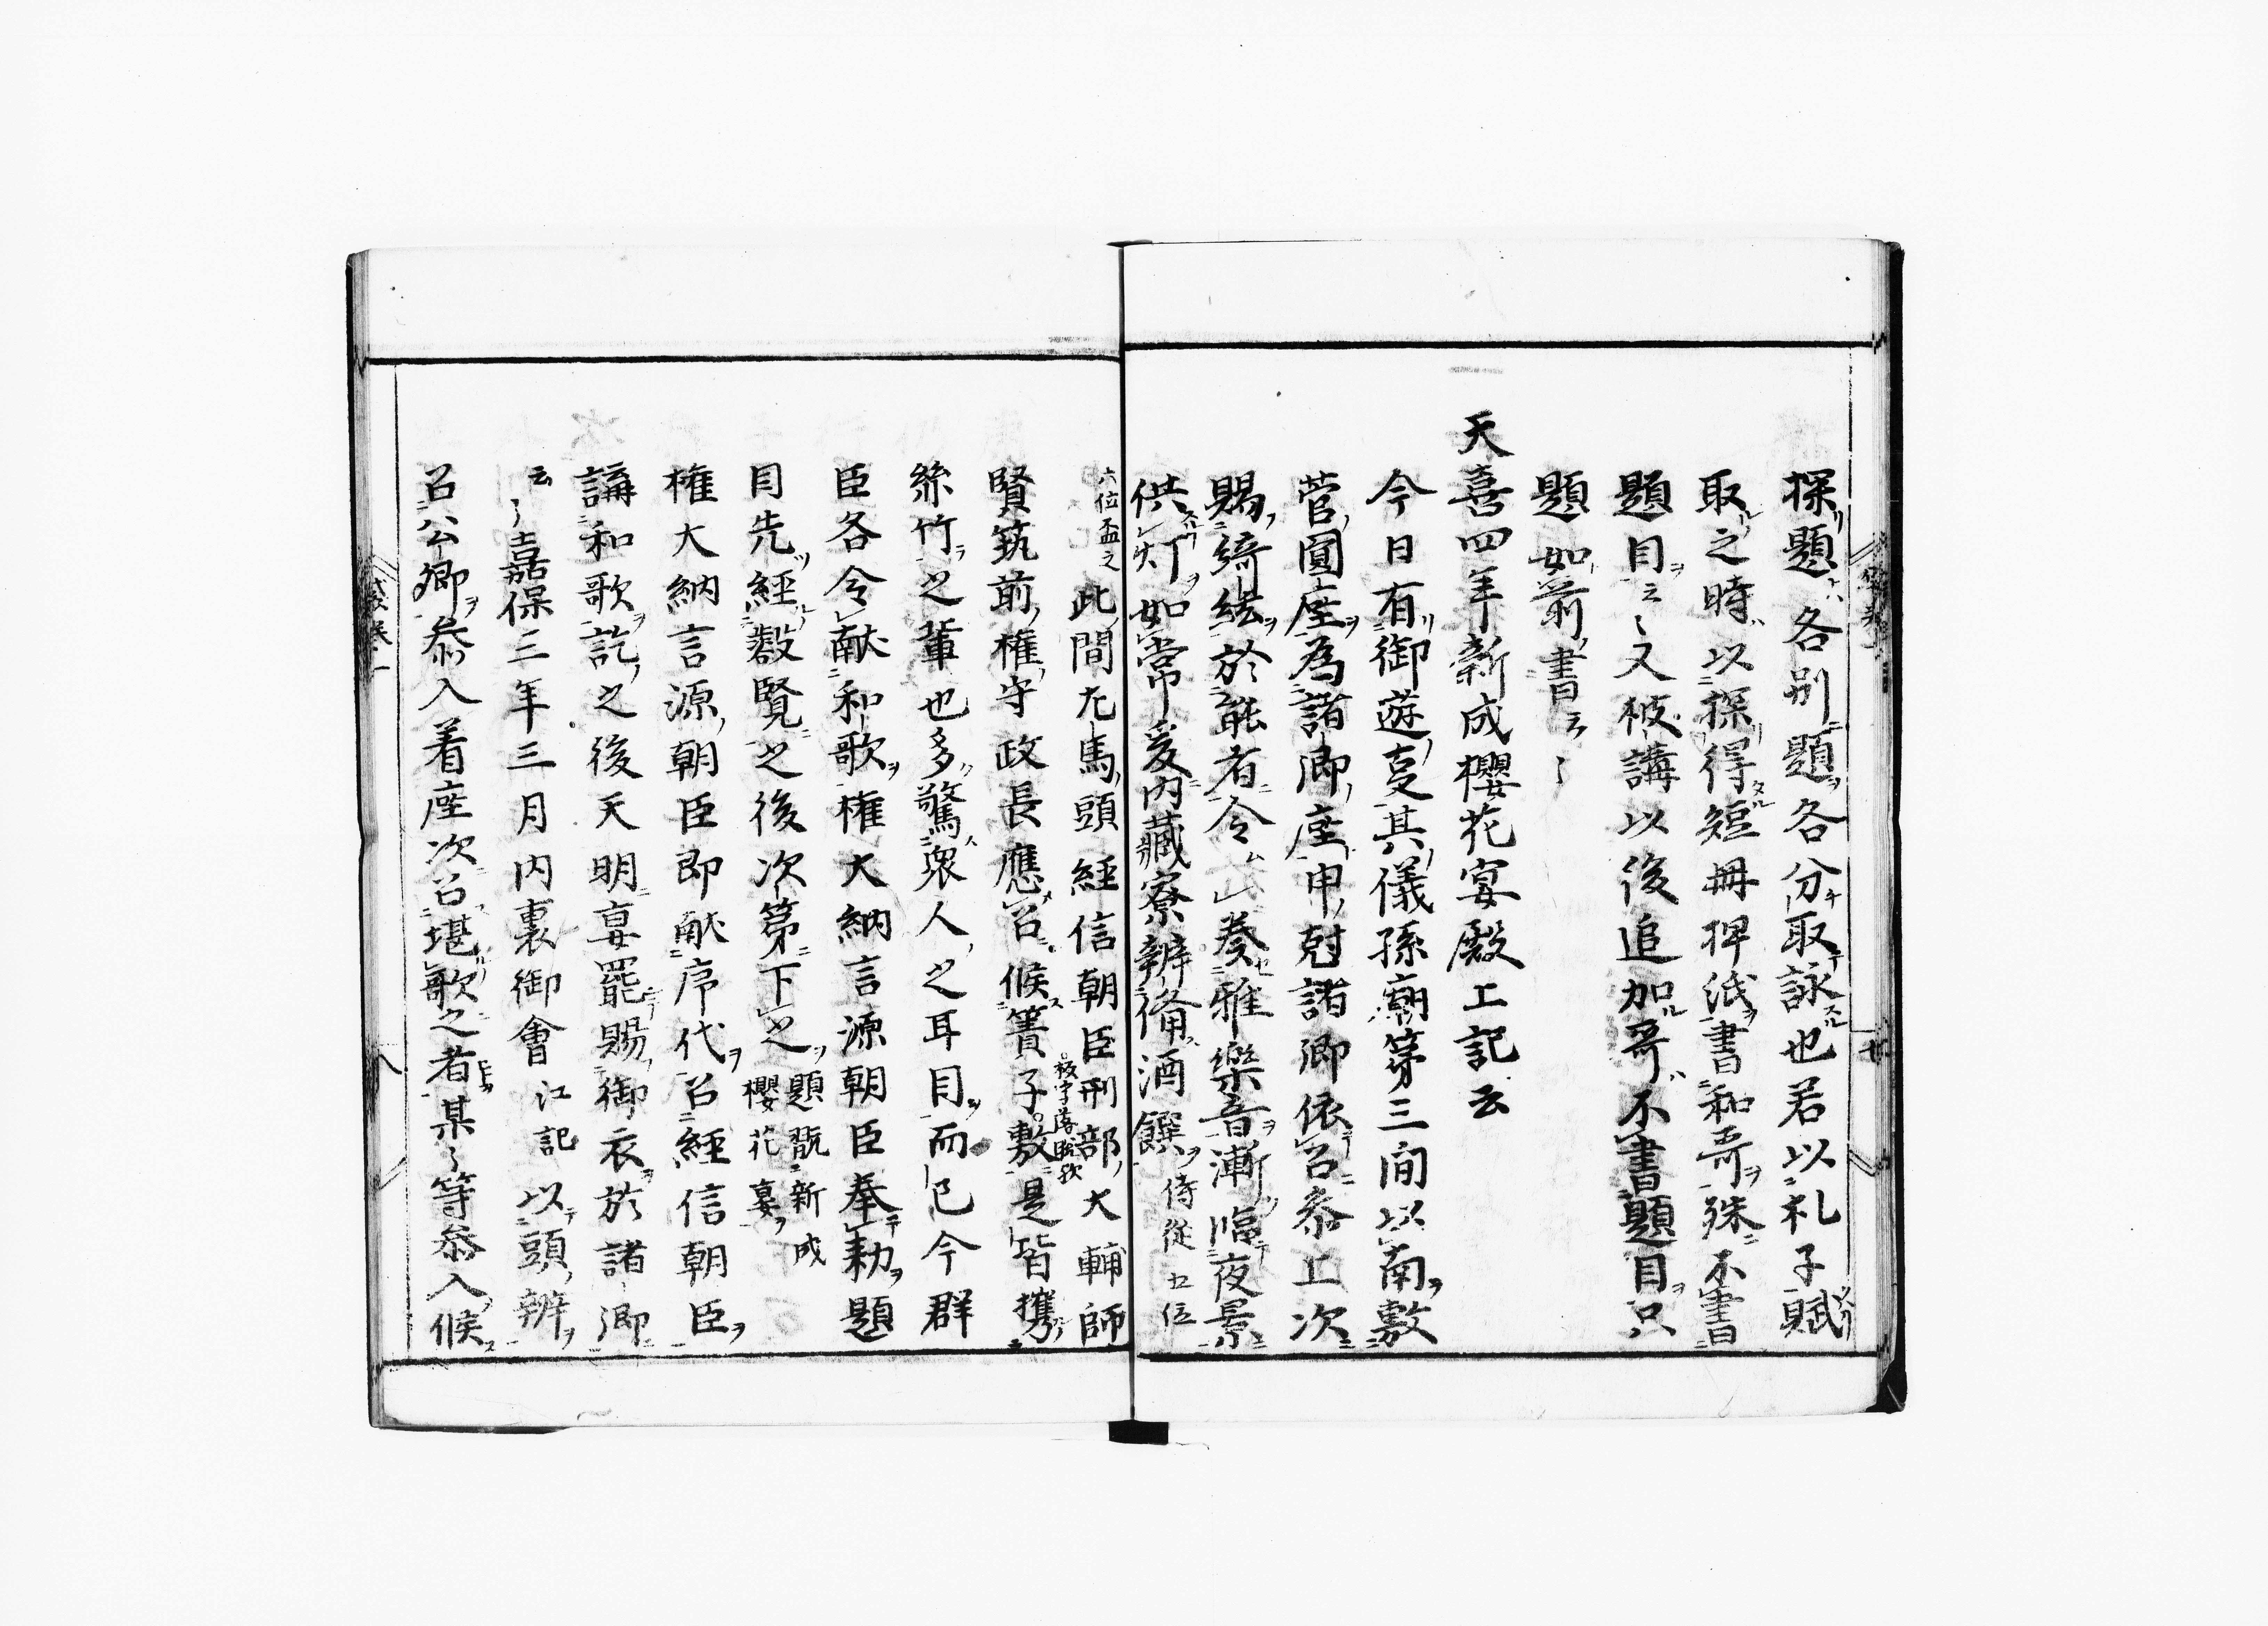 探題各別題各分取詠也若以礼子賦
取之時以探得短冊裡紙書和哥殊不書
題目云〻又被講以後追加哥不書題目只
題如前書云〻
天喜四年新成櫻花宴殿上記云
今日有御遊夏其儀孫廂第三間以南敷
菅圓座為諸卿座申尅諸卿依召参上次
賜綺絃於能者令奏雅樂音漸臨夜景
供灯如常爰内藏寮辨備酒饌侍從七位
六位盃之此間左馬頭経信朝臣刑部大輔師
賢筑前権守政長應召候簀子敷是皆携
絲竹之輩也多驚衆人之耳目而已今群
臣各令献和歌権大納言源朝臣奉勅題
目先経叡覧之後次第下之題翫新成
櫻花宴
権大納言源朝臣即献序代召経信朝臣
講和歌訖之後天明宴罷賜御衣於諸卿
云〻嘉保三年三月内裏御會江記以頭辨
召公卿参入着座次召堪歌之者某〻等参入候